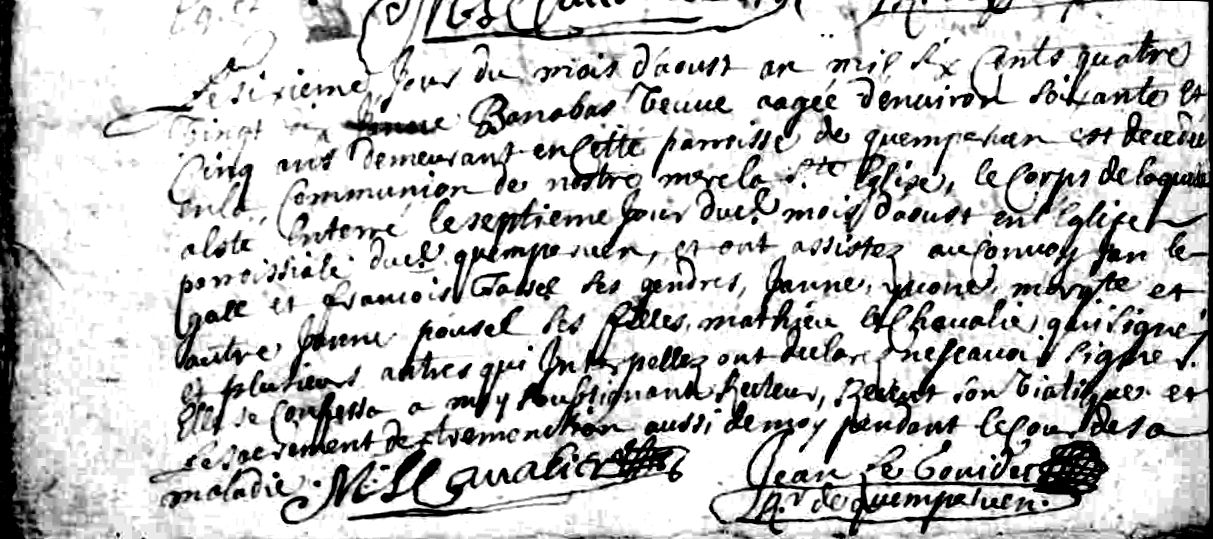 Le sixieme Jour du mois d'aoust an mil six Cents quatre
Vingt six Banabas veuve aagée d'environ soixante Et
Cinq ans demeurant en Cette parroisse de quemperven est decedée
en la Communion de nostre mere la Ste Eglise, le Corps de laquelle
a esté Enterré le septieme Jour dud. mois d'aoust en l'Eglise
parroissiale dud. quemperven, et ont assistez au Convoy Jan le
gall et francois ses gendres, Janne, yvone, margte et
autre Janne pousel ses filles, mathieu le Chevalie qui signe,
et plusieurs autres qui Interpellez ont declaré ne scavoir signer.
Elle se Confessa a moy soubsignant Recteur, Receut son viatique et
le sacrement de l'extremonction aussi de moy pendant le Cours de sa
maladie. M: L Cavalier Jean le
Rr de quemperven.